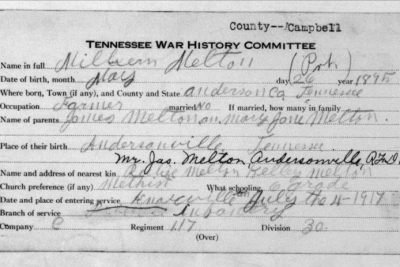 County--Campbell
TENNESSEE WAR HISTORY COMMITTEE
Name in full Milburn Melton (Prt.)
Date of birth, month May day 26 year 1895
Where born, Town (if any), and County and State anderson Co. Tennessee
Occupation Farmer married no If married, how many in family
Name of parents James Melton Mary Jane Melton.
Place of their birth Andersonville, Tennessee
Mr. Jas. Melton, Andersonville, R.F.D.
Name and address of nearest kin Melton Kelley Melton
Church preference (if any) What schooling 6 grade
Date and place of entering service Knoxville July the 4 - 1917
Branch of service Infantry
Company C Regiment 117 Division 30.
(Over)